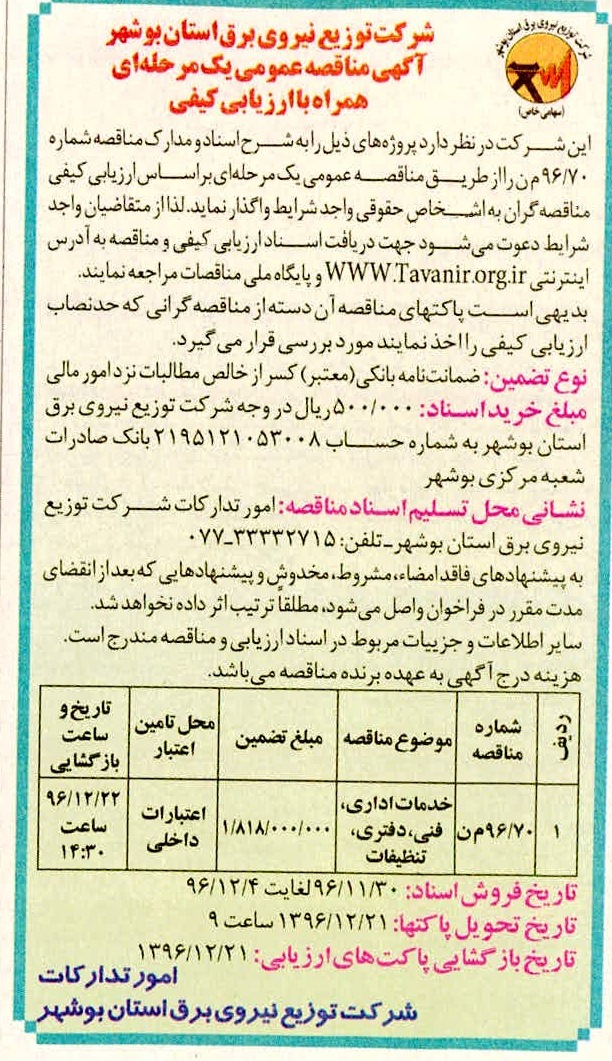 شرکت توزیع نیروی برق استان بوشهر
آگهی مناقصه عمومی یک مرحله‌ای
همراه با ارزیابی کیفی
شرکت توزیع نیروی برق استان بوشهر
(سهامی خاص)
این شرکت در نظر دارد پروژه‌های ذیل را به شرح اسناد و مدارک مناقصه شماره
۹۶/۷۰م ن را از طریق مناقصه عمومی یک مرحله‌ای براساس ارزیابی کیفی
مناقصه‌گران به اشخاص حقوقی واجد شرایط واگذار نماید. لذا از متقاضیان واجد
شرایط دعوت می‌شود جهت دریافت اسناد ارزیابی کیفی و مناقصه به آدرس
اینترنتی WWW.Tavanir.org.ir و پایگاه ملی مناقصات مراجعه نمایند.
بدیهی است پاکتهای مناقصه آن دسته از مناقصه گرانی که حدنصاب
ارزیابی کیفی را اخذ نمایند مورد بررسی قرار می گیرد.
نوع تضمین: ضمانت‌نامه بانکی (معتبر) کسر از خالص مطالبات نزد امور مالی
مبلغ خرید اسناد: ۵۰۰/۰۰۰ ریال در وجه شرکت توزیع نیروی برق
استان بوشهر به شماره حساب ۲۱۹۵۱۲۱۰۵۳۰۰۸ بانک صادرات
شعبه مرکزی بوشهر
نشانی محل تسلیم اسناد مناقصه: امور تدارکات شرکت توزیع
نیروی برق استان بوشهر ـ تلفن: ۳۳۳۳۲۷۱۵ـ۰۷۷
به پیشنهادهای فاقد امضاء، مشروط، مخدوش و پیشنهادهایی که بعد از انقضای
مدت مقرر در فراخوان واصل می‌شود، مطلقاً ترتیب اثر داده نخواهد شد.
سایر اطلاعات و جزییات مربوط در اسناد ارزیابی و مناقصه مندرج است.
هزینه درج آگهی به عهده برنده مناقصه می‌باشد.
ردیف شماره مناقصه موضوع مناقصه مبلغ تضمین محل تامین اعتبار تاریخ و ساعت بازگشایی
۱ ۹۶/۷۰م ن خدمات اداری، فنی، دفتری، تنظیفات ۱/۸۱۸/۰۰۰/۰۰۰ اعتبارات داخلی ۹۶/۱۲/۲۲ ساعت ۱۴:۳۰
تاریخ فروش اسناد: ۹۶/۱۱/۳۰ لغایت ۹۶/۱۲/۴
تاریخ تحویل پاکتها: ۱۳۹۶/۱۲/۲۱ ساعت ۹
تاریخ بازگشایی پاکت‌های ارزیابی: ۱۳۹۶/۱۲/۲۱
امور تدارکات
شرکت توزیع نیروی برق استان بوشهر